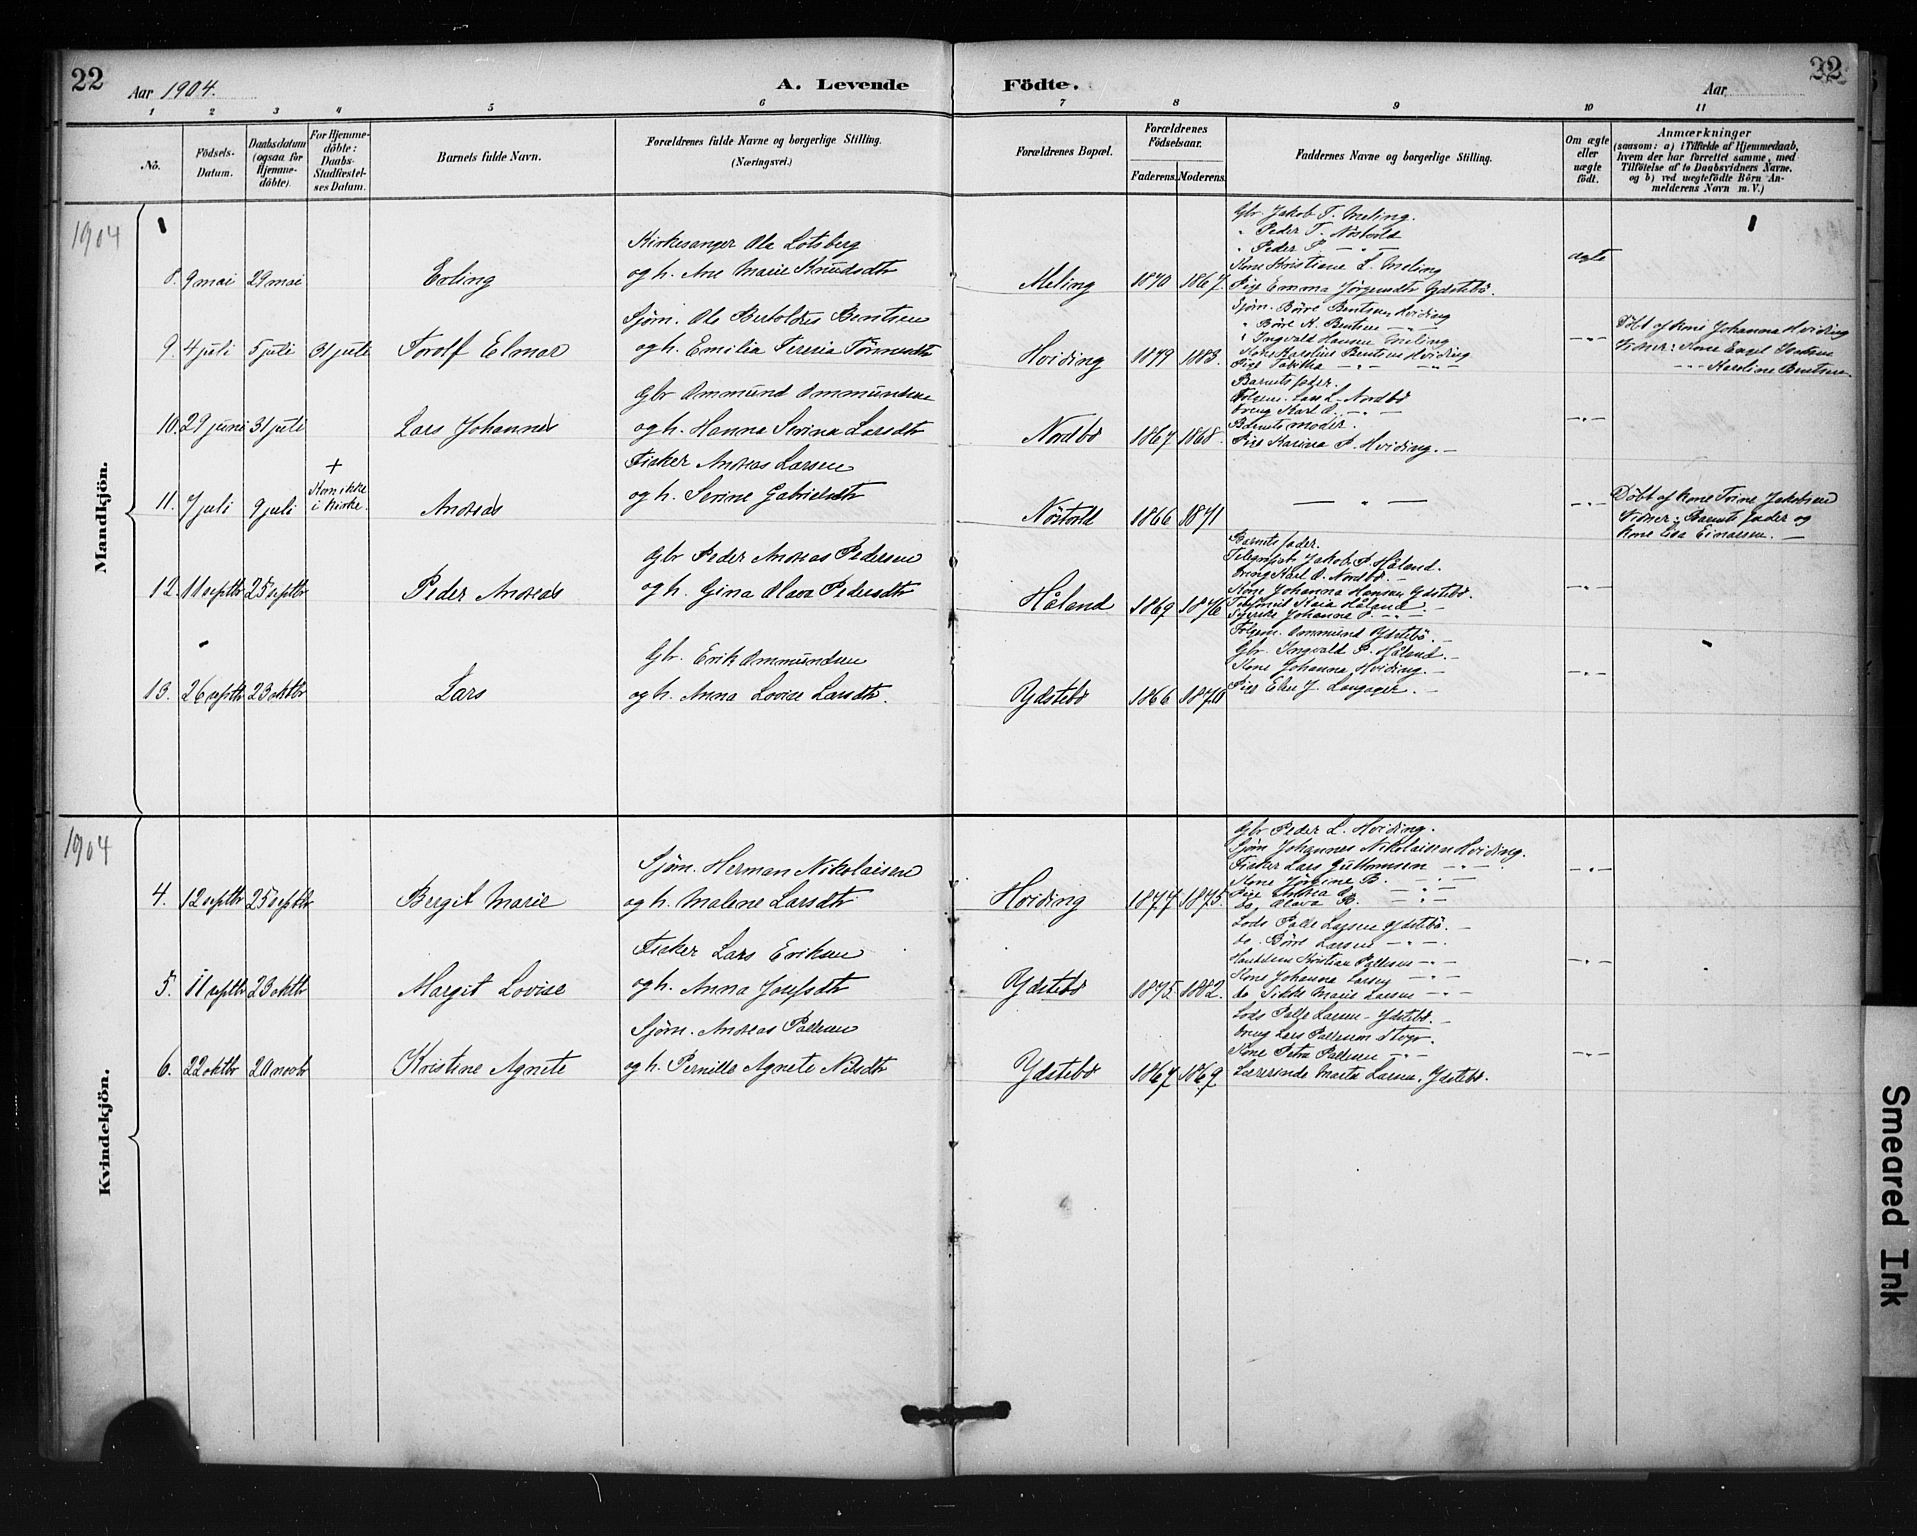 22
Aar 1904.
A. Levende
Födte.
Aar
22
1 2 3 4 5 6 7 8 9 10 11
No.
Födsels-
Datum.
Daabsdatum
(ogsaa for
Hjemme-
döbte).
For Hjemme-
döbte:
Daabs-
Stadfæstel-
ses Datum.
Barnets fulde Navn.
Forældrenes fulde Navne og borgerlige Stilling.
(Næringsvei.)
Forældrenes Bopæl.
Forældrenes
Födselsaar.
Faderens. Moderens.
Faddernes Navne og borgerlige Stilling.
Om ægte
eller
uægte
födt.
Anmærkninger
(saasom: a) i Tilfælde af Hjemmedaab,
hvem der har forrettet samme, med
Tilföielse af to Daabsvidners Navne.
og b) ved uægtefödte Börn An-
melderens Navn m. V.)
Mandkjön.
1904
8. 9 mai 29 mai
Erling
Kirkesanger Ole Lotsberg
og h. Ane Marie Knudsdtr
Meling
1870 1867.
Gbr. Jakob T. Meling.
" Peder T. Nöstvold
" Peder P. — " —
Kone Kristiane L. Meling
Pige Emma Jörgensdtr Ydstebö.
ægte
9. 4 juli 5 juli 31 juli
Torolf Elmar
Sjöm. Ole Bertoldus Bentsen
og h. Emilia Teresia Tönnesdtr
Hviding
1879 1883.
Sjöm. Böre Bentsen Hviding
" Böre A. Bentsen — " —
" Ingvald Hansen Meling
Kone Karoline Bentsen Hviding
Pige Tabitha — " — — " —
— " —
Döbt af Kone Johanna Hviding
Vidner: Kone Engel
— " — Karoline Bentsen
10. 29 juni 31 juli
Lars Johannes
Gbr Ommund Ommundsen
og h. Hanna Serina Larsdtr
Nordbö
1867 1868.
Barnets fader.
Lars L. Nordbö
Dreng Karl O. — " —
Barnets moder.
Pige Karina P. Hviding. —
— " —
11. 7 juli 9 juli
+
Kom ikke
i Kirke.
Andreas
Fisker Andreas Larsen
og h. Serine Gabrielsdtr
Nöstvold
1866 1871
— " —
— " —
Döbt af Kone Trine Jakobsen
Vidner: Barnets fader og
Kone Lisa Einarsen. —
12. 11 septbr 25 septbr
Peder Andreas
Gbr Peder Andreas Pedersen
og h. Gina Olava Pedersdtr
Håland
1869 1876
Barnets fader.
Telegrafist Jakob P. Håland.
Dreng Karl O. Nordbö. —
Kone Johanna Hansen Ydstebö.
Kaia Håland. —
Johanne P. — " —
— " —
13. 26 septbr 23 oktbr
Lars
Gbr. Erik Ommundsen
og h. Anna Lovise Larsdtr.
Ydstebö
1866 1870
Ommund Ydstebö. —
Gbr. Ingvald P. Håland. —
Kone Johanna Hviding. —
Pige Elen J. Langager. —
— " —
Kvindekjön.
1904
4. 12 septbr 25 septbr
Birgit Marie
Sjöm. Herman Nikolaisen
og h. Malene Larsdtr
Hviding
1877 1875.
Gbr Peder L. Hviding.
Sjöm Johannes Nikolaisen Hviding.
Fisker Lars Guttormsen — " —
Kone Jörgine B. — " —
Pige
do. Olava B. — " —
— " —
5. 11 septbr 23 oktbr
Margit Lovise
Fisker Lars Eriksen
og h. Anna Josefsdtr
Ydstebö
1875 1882.
Lods Palle Larsen Ydstebö. —
do. Böre Larsen — " —
Kristian Pallesen — " —
Kone Johanna Larsen — " —
do Sikke Marie Larsen — " —
— " —
6. 22 oktbr 20 novbr
Kristine Agnete
Sjöm. Andreas Pallesen
og h. Pernille Agnete Nilsdtr
Ydstebö
1867 1869
Lods Palle Larsen — Ydstebö. —
Dreng Lars Pallesen
Kone Petra Pallesen — " —
Lærerinde Marta Larsen, Ydstebö.
— " —
Smeared Ink